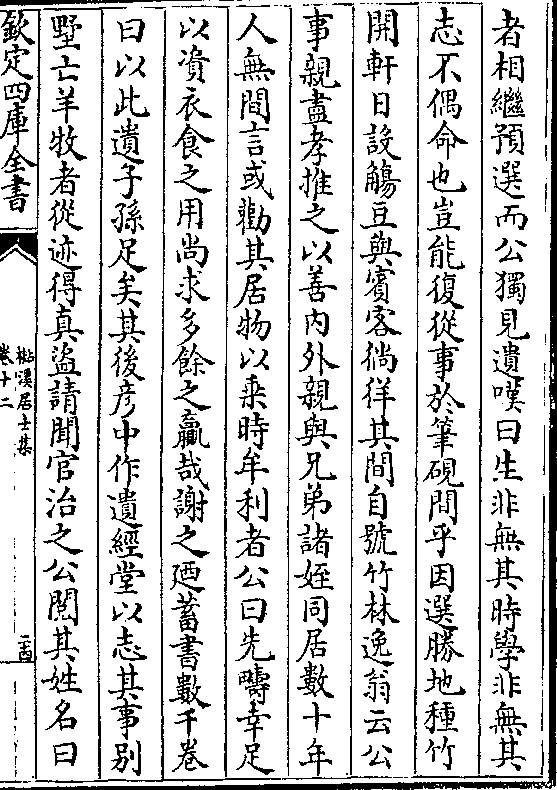 者相繼預選而公獨見遺嘆曰生非無其時學非無其
志不偶命也豈能復從事於筆硯間乎因選勝地種竹
開軒日設觴豆與賓客徜徉其間自號竹林逸翁云公
事親盡孝推之以善内外親與兄弟諸姪同居數十年
人無間言或勸其居物以乘時牟利者公曰先疇幸足
以資衣食之用尚求多餘之贏哉謝之廼蓄書數千卷
曰以此遺子孫足矣其後彦中作遺經堂以志其事别
墅亡羊牧者從迹得真盜請聞官治之公閲其姓名曰
欽定四庫全書
溪居士集
卷十二